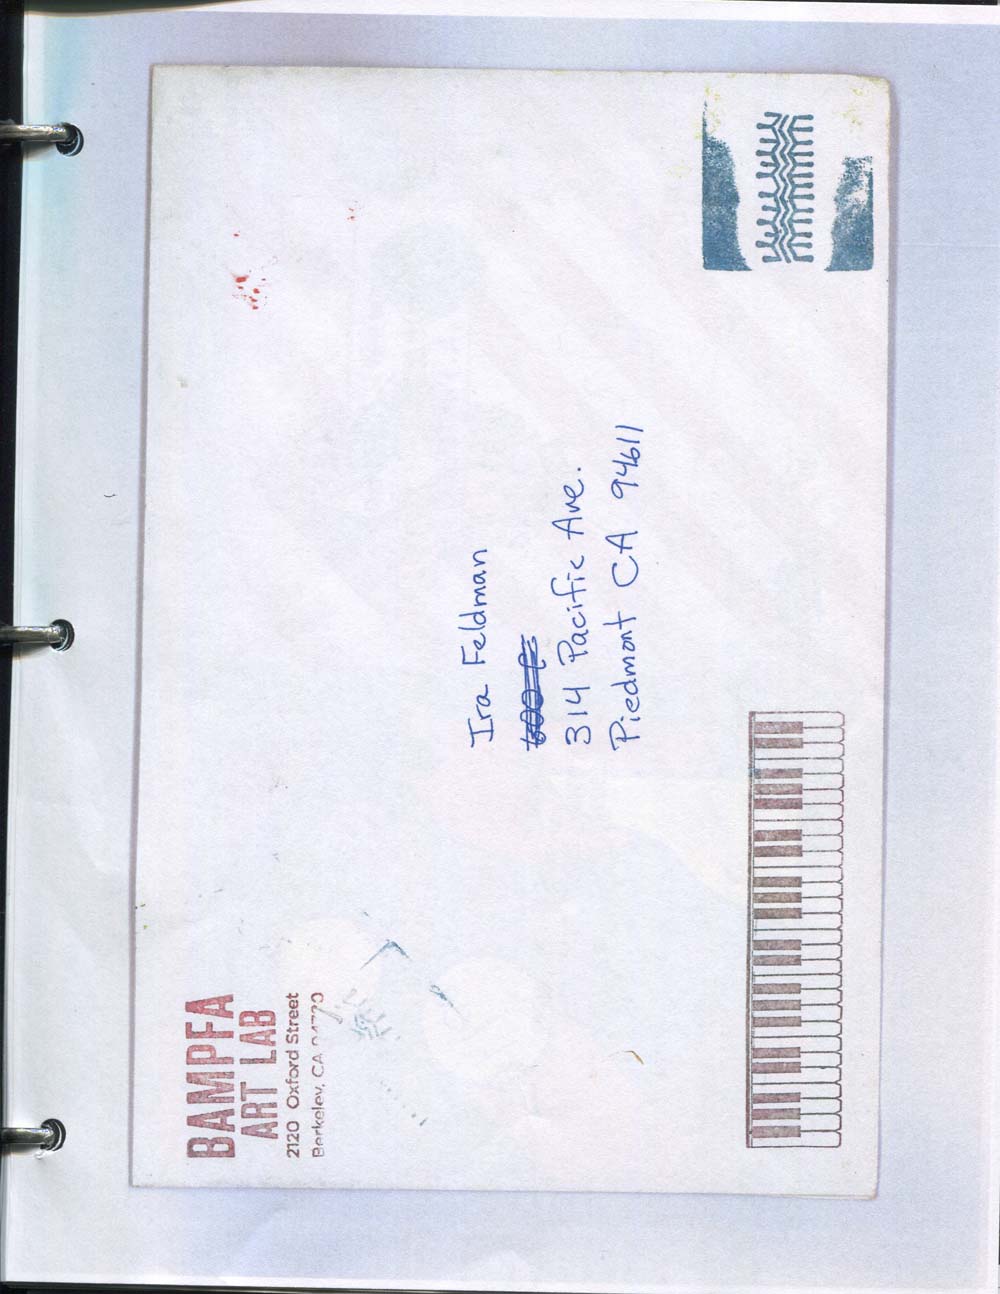 BAMPFA
ART LAB
2120 Oxford Street
Berkeley, CA
Ira Feldman
314 Pacific Ave.
Piedmont CA 94611